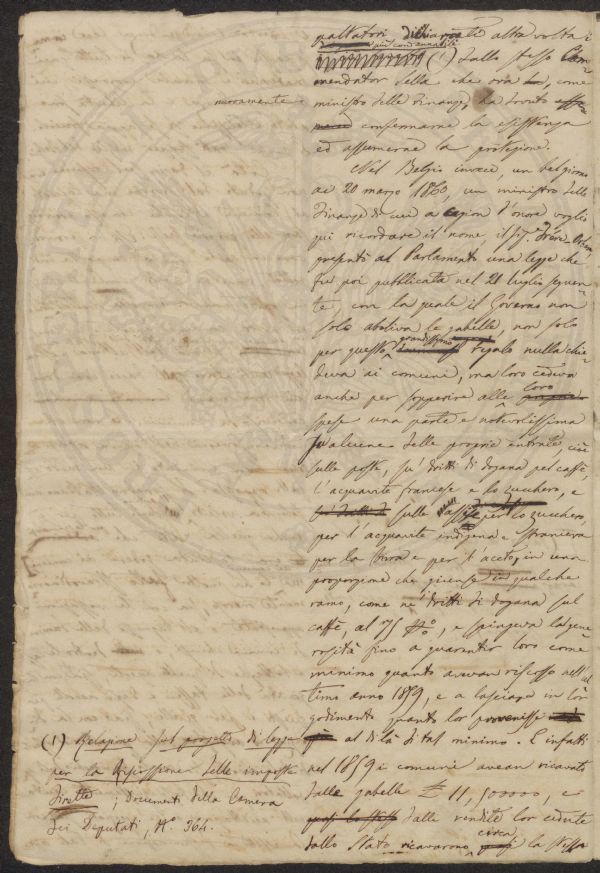 paltatori, dichiarate altra volta i
più condannabili
(1) dallo stesso Com-
mendator Sella che ora, come
ministro delle Finanze, ha dovuto
nuovamente
confermarne la esistenza
ed assumerne la protezione.
Nel Belgio invece, un bel giorno
ai 20 marzo 1860, un ministro delle
Finanze di cui a cagion d'onore voglio
qui ricordare il nome, il sig. Frère-Orban
presentò al Parlamento una legge che
fu poi pubblicata nel 21 luglio seguen-
te, con la quale il Governo non
solo aboliva le gabelle, non solo
per questo grandissimo regalo nulla chie-
deva ai comuni, ma loro cedeva
anche per sopperire alle loro
spese una parte e notevolissima
su alcune delle proprie entrate, cioè
sulle poste, su' dritti di dogana pel caffè,
l'acquavite francese e lo zucchero, e
sulle tasse per lo zucchero,
per l'acquavite indigena e straniera
per la birra e per l'aceto, in una
proporzione che giunse in qualche
ramo, come ne' dritti di dogana sul
caffè, al 75 %, e spingeva la gene-
rosità fino a guarentir loro come
minimo quanto avean riscosso nell'ul-
timo anno 1859, e a lasciare in lor
godimento quanto lor provenisse
al di là di tal minimo. E infatti
nel 1859 i comuni avean ricavato
dalle gabelle £ 11,500000, e
dalle rendite lor cedute
dallo Stato ricavarono circa la stessa
(1) Relazione sul progetto di legge
per la Riscossione delle imposte
dirette; Documenti della Camera
dei Deputati, N.° 364.